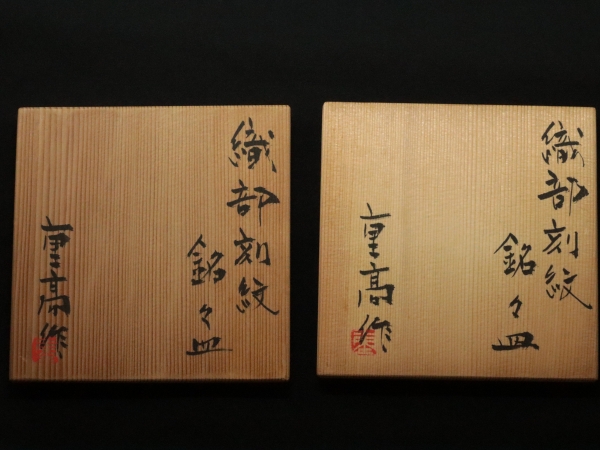 織部刻紋
銘々皿
重高作
織部刻紋
銘々皿
重高作